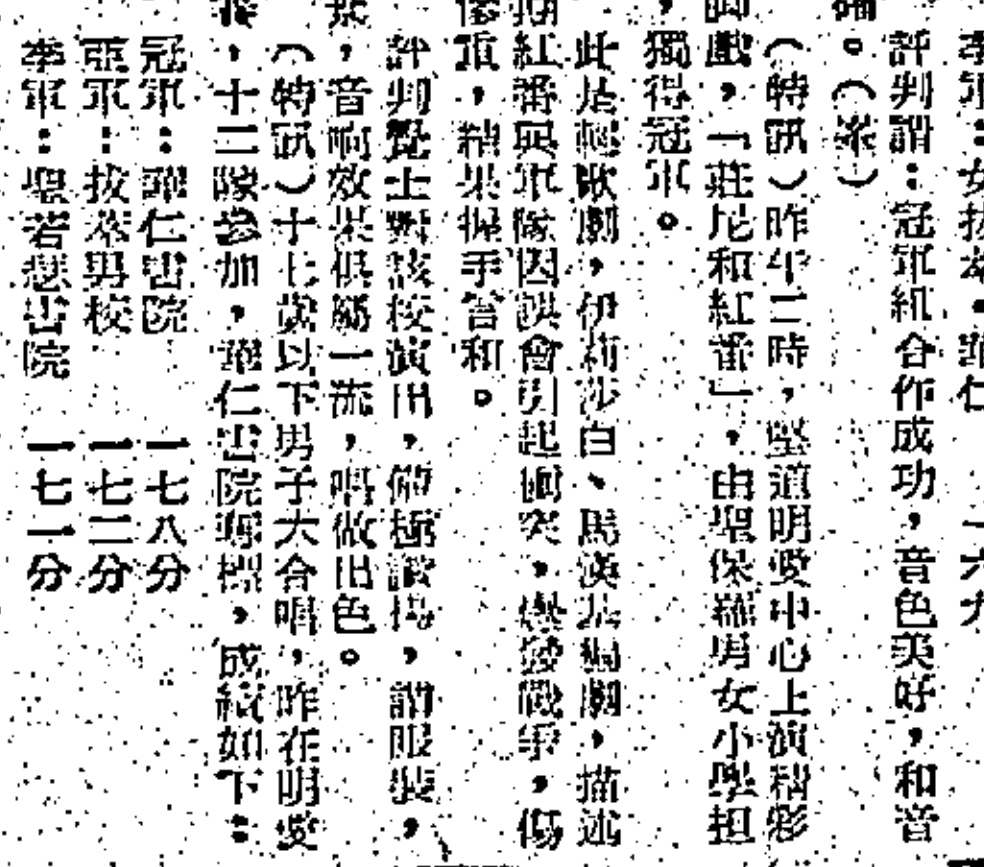 季軍：女拔萃・華仁　一六九
評判謂：冠軍組合作成功，音色美好，和音
。（柔）
（特訊）昨午二時，堅道明愛中心上演精彩
戲，「莊尼和紅番」，由聖保羅男女小學担
，獨得冠軍。
此是輕歌劇，伊莉沙白、馬漢基編劇，描述
紅番與軍隊因誤會引起衝突，爆發戰爭，傷
重，結果握手言和。
評判覺士對該校演出，備極讚揚，謂服裝，
，音响效果俱屬一流，唱做出色。
（特訊）十七歲以下男子大合唱，昨在明愛
，十二隊參加，華仁書院奪標，成績如下：
冠軍：華仁書院　一七八分
亞軍：拔萃男校　一七二分
季軍：聖若瑟書院　一七一分